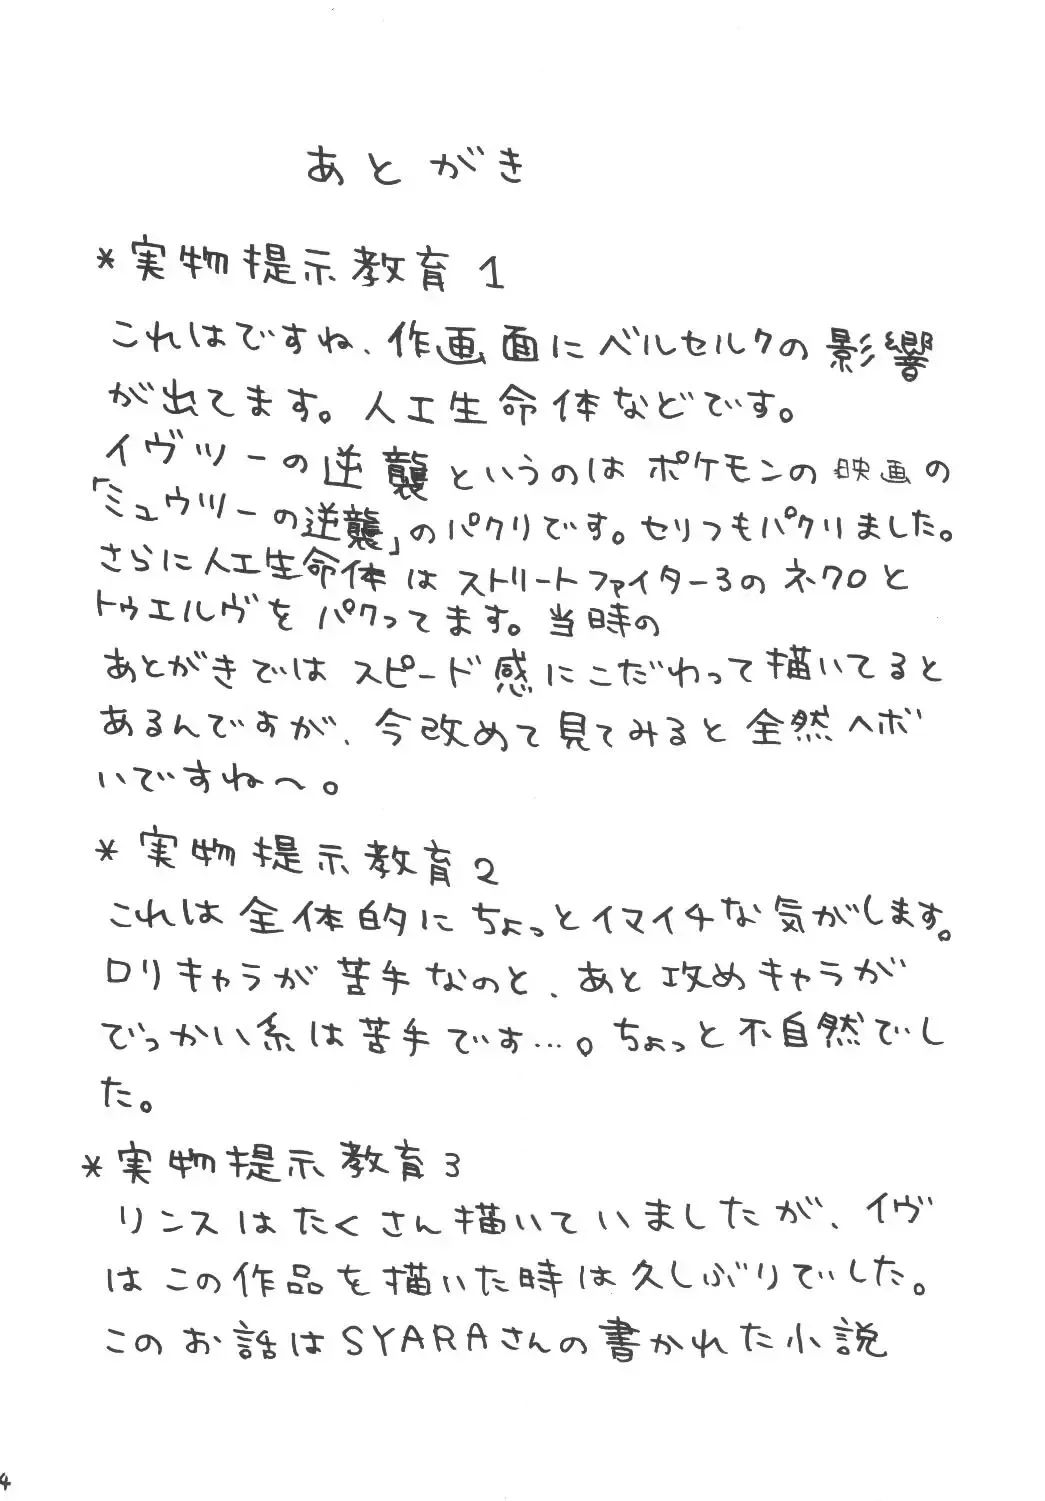 あとがき
*実物提示教育1
これはですね、作画面にベルセルクの影響
が出てます。人工生命体などです。
イヴツーの逆襲というのはポケモンの映画の
「ミュウツーの逆襲」のパクリです。セリフもパクリました。
さらに人工生命体はストリートファイター3のネクロと
トゥエルヴをパクってます。当時の
あとがきではスピード感にこだわって描いてると
あるんですが、今改めて見てみると全然ヘボ
いですね〜。
*実物提示教育2
これは全体的にちょっとイマイチな気がします。
ロリキャラが苦手なのと、あと攻めキャラが
でっかい系は苦手です…。ちょっと不自然でし
た。
*実物提示教育3
リンスはたくさん描いていましたが、イヴ
はこの作品を描いた時は久しぶりでした。
このお話はSYARAさんの書かれた小説
4